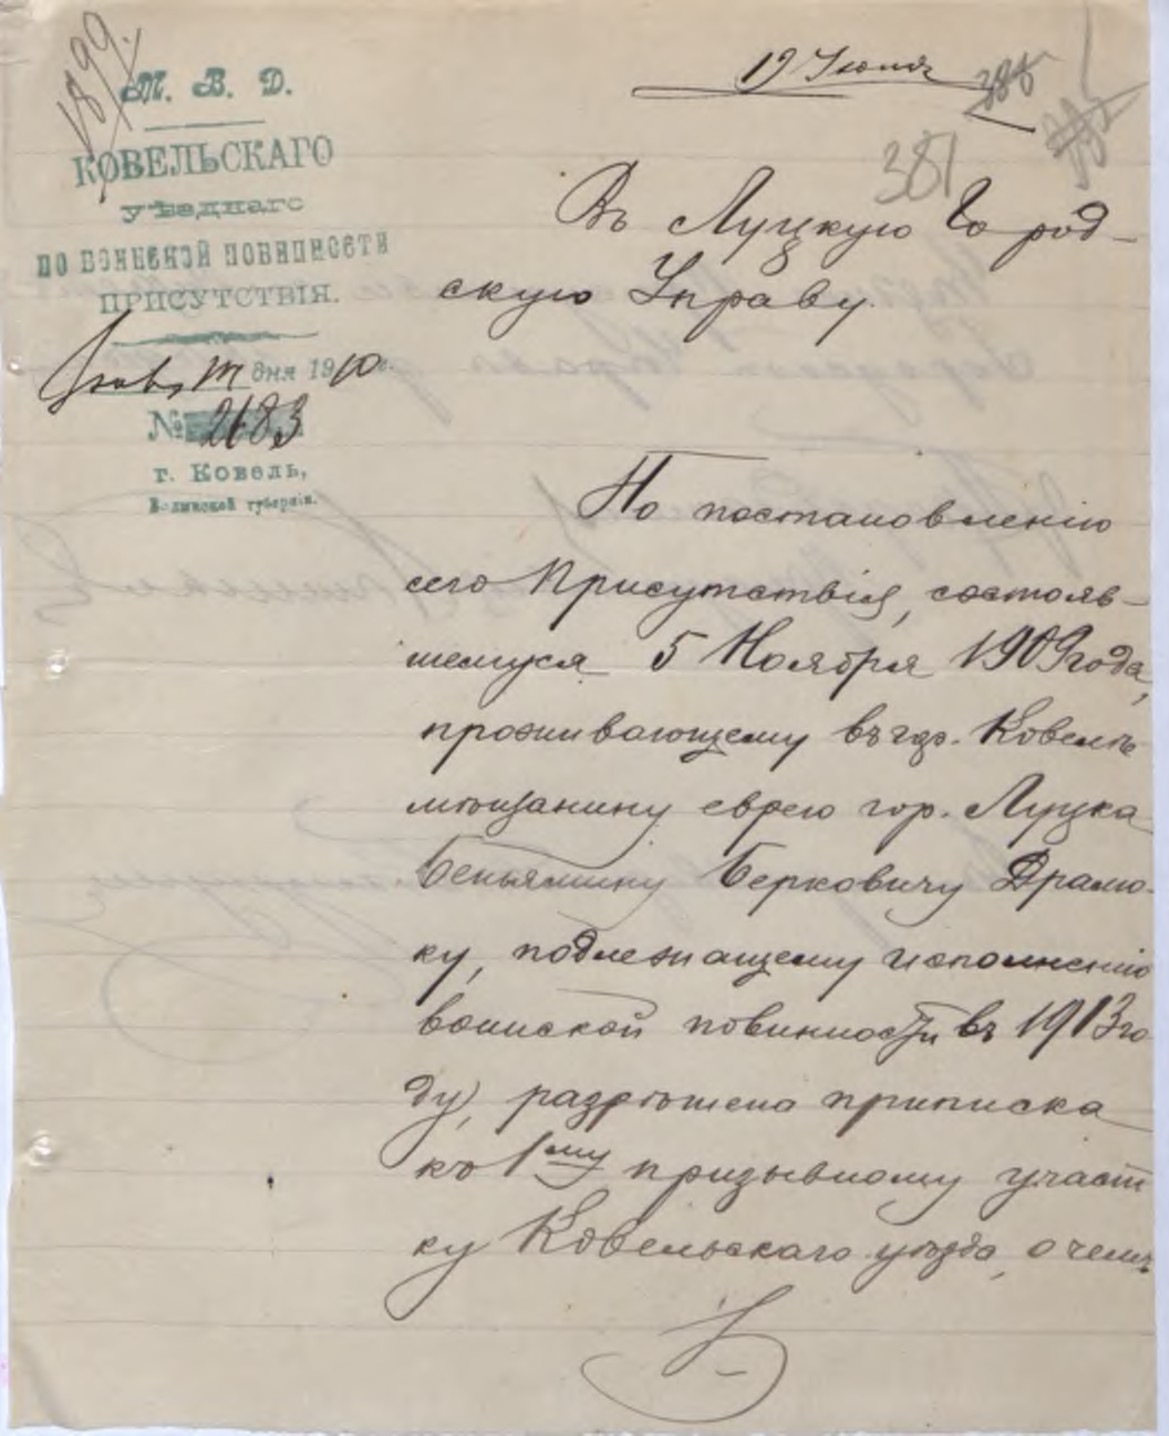 1899.
М. В. Д.
КОВЕЛЬСКАГО
уѣзднаго
ПО ВОИНСКОЙ ПОВИННОСТИ
ПРИСУТСТВІЯ.
дня 1910 г.
№ 2683
г. Ковель,
Волынской губерніи.
19 Іюня
385
381
Въ Луцкую Город-
скую Управу.
По постановленію
сего Присутствія, состояв-
шемуся 5 Ноября 1909 года,
проживающему въ гор. Ковелѣ
мѣщанину еврею гор. Луцка
Беньямину Берковичу Драпю-
ку, подлежащему исполненію
воинской повинности въ 1913 го-
ду, разрѣшена приписка
къ 1му призывному участ
ку Ковельскаго уѣзда, о чемъ